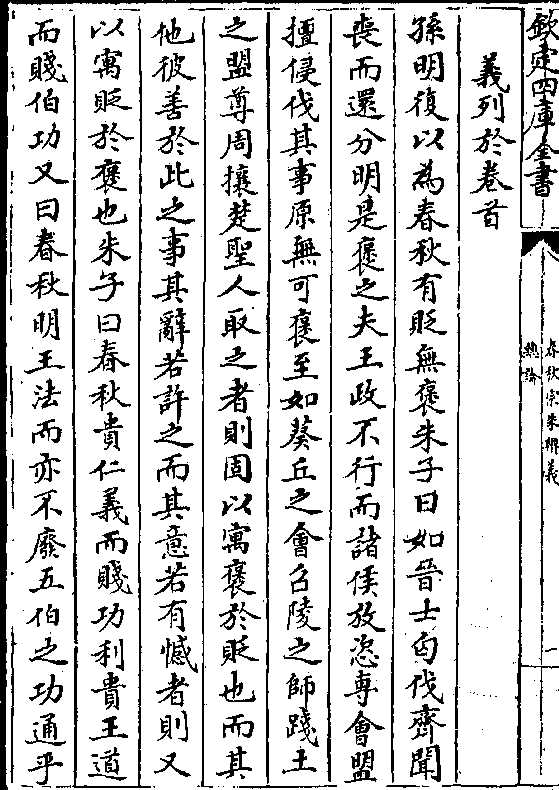 欽定四庫全書
春秋宗朱辨義
總論
一
義列於卷首
孫明復以為春秋有貶無褒朱子曰如晉士匄伐齊聞
喪而還分明是褒之夫王政不行而諸侯放恣專會盟
擅侵伐其事原無可褒至如葵丘之會召陵之師踐土
之盟尊周攘楚聖人取之者則固以寓褒於貶也而其
他彼善於此之事其辭若許之而其意若有憾者則又
以寓貶於褒也朱子曰春秋貴仁義而賤功利貴王道
而賤伯功又曰春秋明王法而亦不廢五伯之功通乎